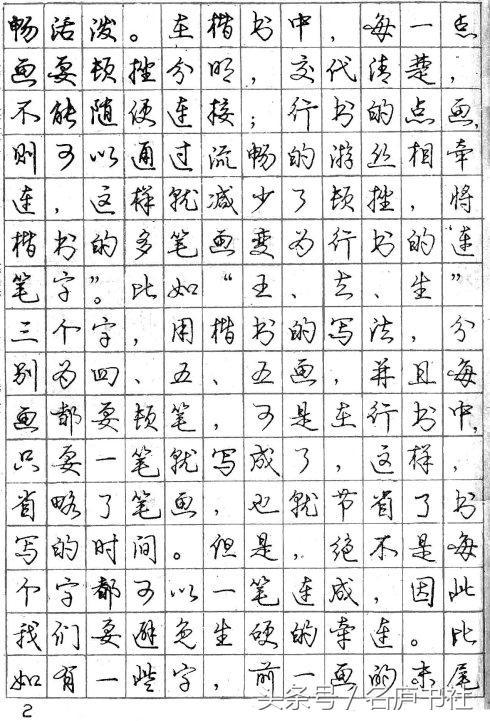 畅活泼。在楷书中，每一点
画要顿挫分明，交代清楚，
不能随便连接；行书的点画，
则可以通过流畅的游丝相牵
连，这样就减少了顿挫，将
楷书的多笔画变为行书的“连
笔字”。比如“王、去、生”
三个字，用楷书的写法，分
别为四、五、五画，并且每
画都要顿笔，可是在行书中，
只要一笔就写成了，这样，
省略了笔画，也就节省了书
写的时间。但是，绝不是每
个字都可以一笔连成，因此
我们要避免生硬的牵连。比
如有一些字，前一画的末尾
2
头条号/名庐书社